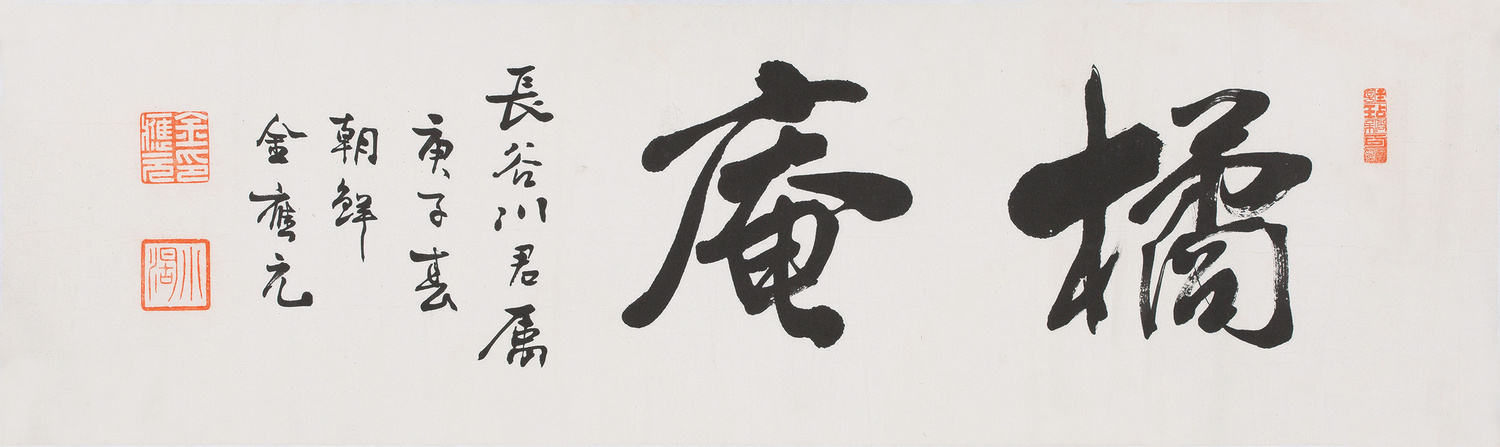 橘庵
長谷川君属
庚子春
朝鮮
金應元
金印應元
小湖